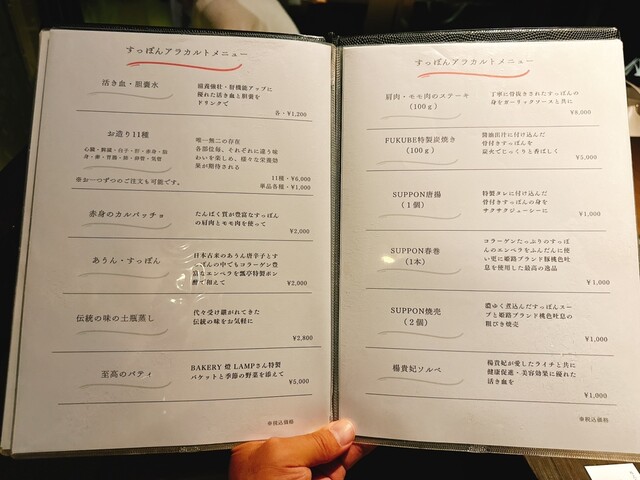 すっぽんアラカルトメニュー
活き血・胆嚢水
滋養強壮・肝機能アップに
優れた活き血と胆嚢を
ドリンクで
各・¥1,200
お造り11種
唯一無二の存在
各部位毎、それぞれに違う味
わいを楽しめ、様々な栄養効
果が期待される
※お一つずつのご注文も可能です。
11種・¥6,000
単品各種・¥1,000
赤身のカルパッチョ
たんぱく質が豊富なすっぽん
の肩肉とモモ肉を使って
¥2,000
あうん・すっぽん
日本古来のあうん唐辛子とす
っぽんの中でもコラーゲン豊
富なエンペラを瓢亭特製ポン
酢で和えて
¥2,000
伝統の味の土瓶蒸し
代々受け継がれてきた
伝統の味をお気軽に
¥2,800
至高のパティ
BAKERY 燈 LAMPさん特製
バケットと季節の野菜を添えて
¥5,000
※税込価格
すっぽんアラカルトメニュー
肩肉・モモ肉のステーキ
(100g)
丁寧に骨抜きされたすっぽんの
身をガーリックソースと共に
¥8,000
FUKUBE特製炭焼き
(100g)
醤油出汁に付け込んだ
骨付きすっぽんを
炭火でじっくりと香ばしく
¥5,000
SUPPON唐揚
(1個)
特製タレに付け込んだ
骨付きすっぽんの身を
サクサクジューシーに
¥1,000
SUPPON春巻
(1本)
コラーゲンたっぷりのすっぽ
んのエンペラをふんだんに使
い更に姫路ブランド豚桃色吐
息を使用した最高の逸品
¥1,000
SUPPON焼売
(2個)
濃ゆく煮込んだすっぽんスー
プと姫路ブランド桃色吐息の
粗びき焼売
¥1,000
楊貴妃ソルベ
楊貴妃が愛したライチと共に
健康促進・美容効果に優れた
活き血を
¥1,000
※税込価格